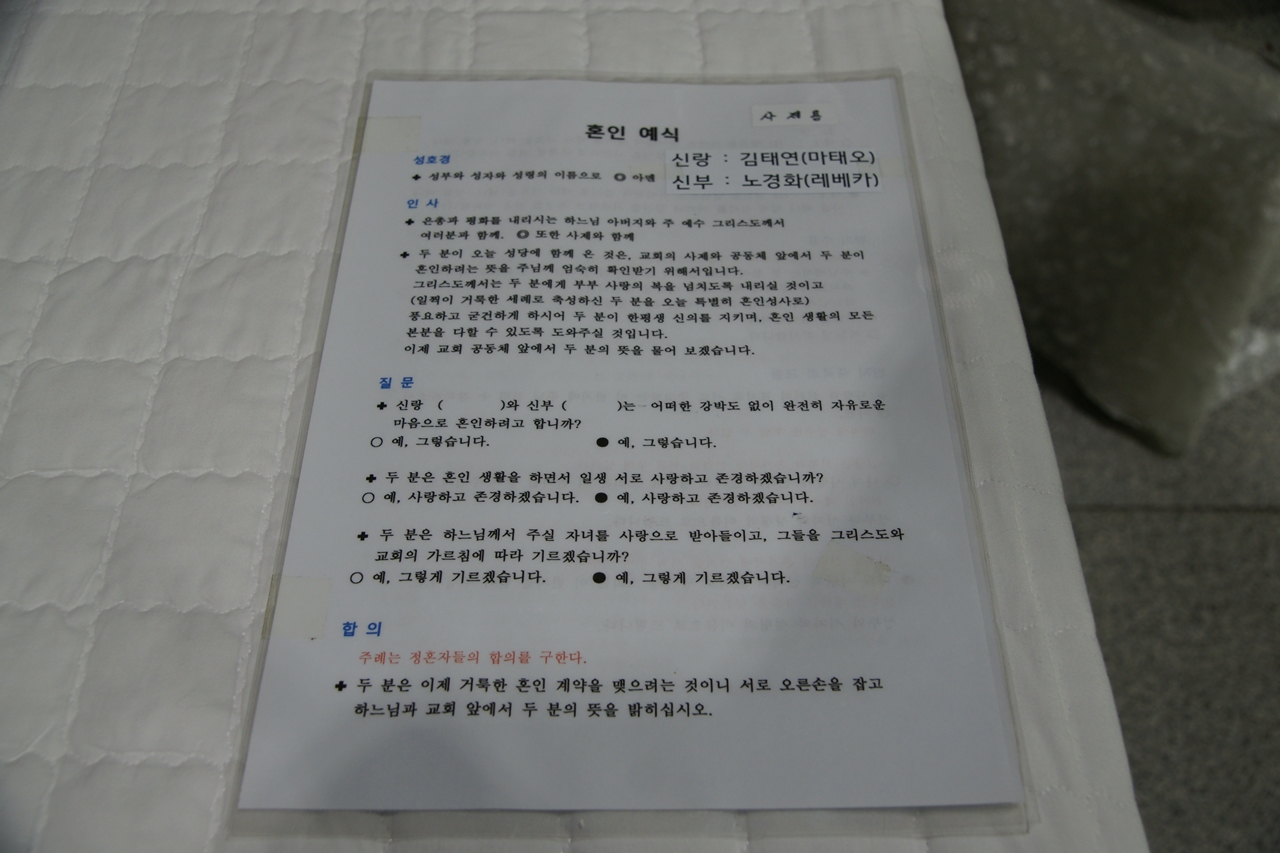 사 제 용
혼인 예식
신랑 : 김태연(마태오)
신부 : 노경화(레베카)
성호경
✚ 성부와 성자와 성령의 이름으로 ◎ 아멘
인 사
✚ 은총과 평화를 내리시는 하느님 아버지와 주 예수 그리스도께서
여러분과 함께. ◎ 또한 사제와 함께
✚ 두 분이 오늘 성당에 함께 온 것은, 교회의 사제와 공동체 앞에서 두 분이
혼인하려는 뜻을 주님께 엄숙히 확인받기 위해서입니다.
그리스도께서는 두 분에게 부부 사랑의 복을 넘치도록 내리실 것이고
(일찍이 거룩한 세례로 축성하신 두 분을 오늘 특별히 혼인성사로)
풍요하고 굳건하게 하시어 두 분이 한평생 신의를 지키며, 혼인 생활의 모든
본분을 다할 수 있도록 도와주실 것입니다.
이제 교회 공동체 앞에서 두 분의 뜻을 물어 보겠습니다.
질 문
✚ 신랑 ( )와 신부 ( )는 어떠한 강박도 없이 완전히 자유로운
마음으로 혼인하려고 합니까?
○ 예, 그렇습니다. ● 예, 그렇습니다.
✚ 두 분은 혼인 생활을 하면서 일생 서로 사랑하고 존경하겠습니까?
○ 예, 사랑하고 존경하겠습니다. ● 예, 사랑하고 존경하겠습니다.
✚ 두 분은 하느님께서 주실 자녀를 사랑으로 받아들이고, 그들을 그리스도와
교회의 가르침에 따라 기르겠습니까?
○ 예, 그렇게 기르겠습니다. ● 예, 그렇게 기르겠습니다.
합 의
주례는 정혼자들의 합의를 구한다.
✚ 두 분은 이제 거룩한 혼인 계약을 맺으려는 것이니 서로 오른손을 잡고
하느님과 교회 앞에서 두 분의 뜻을 밝히십시오.